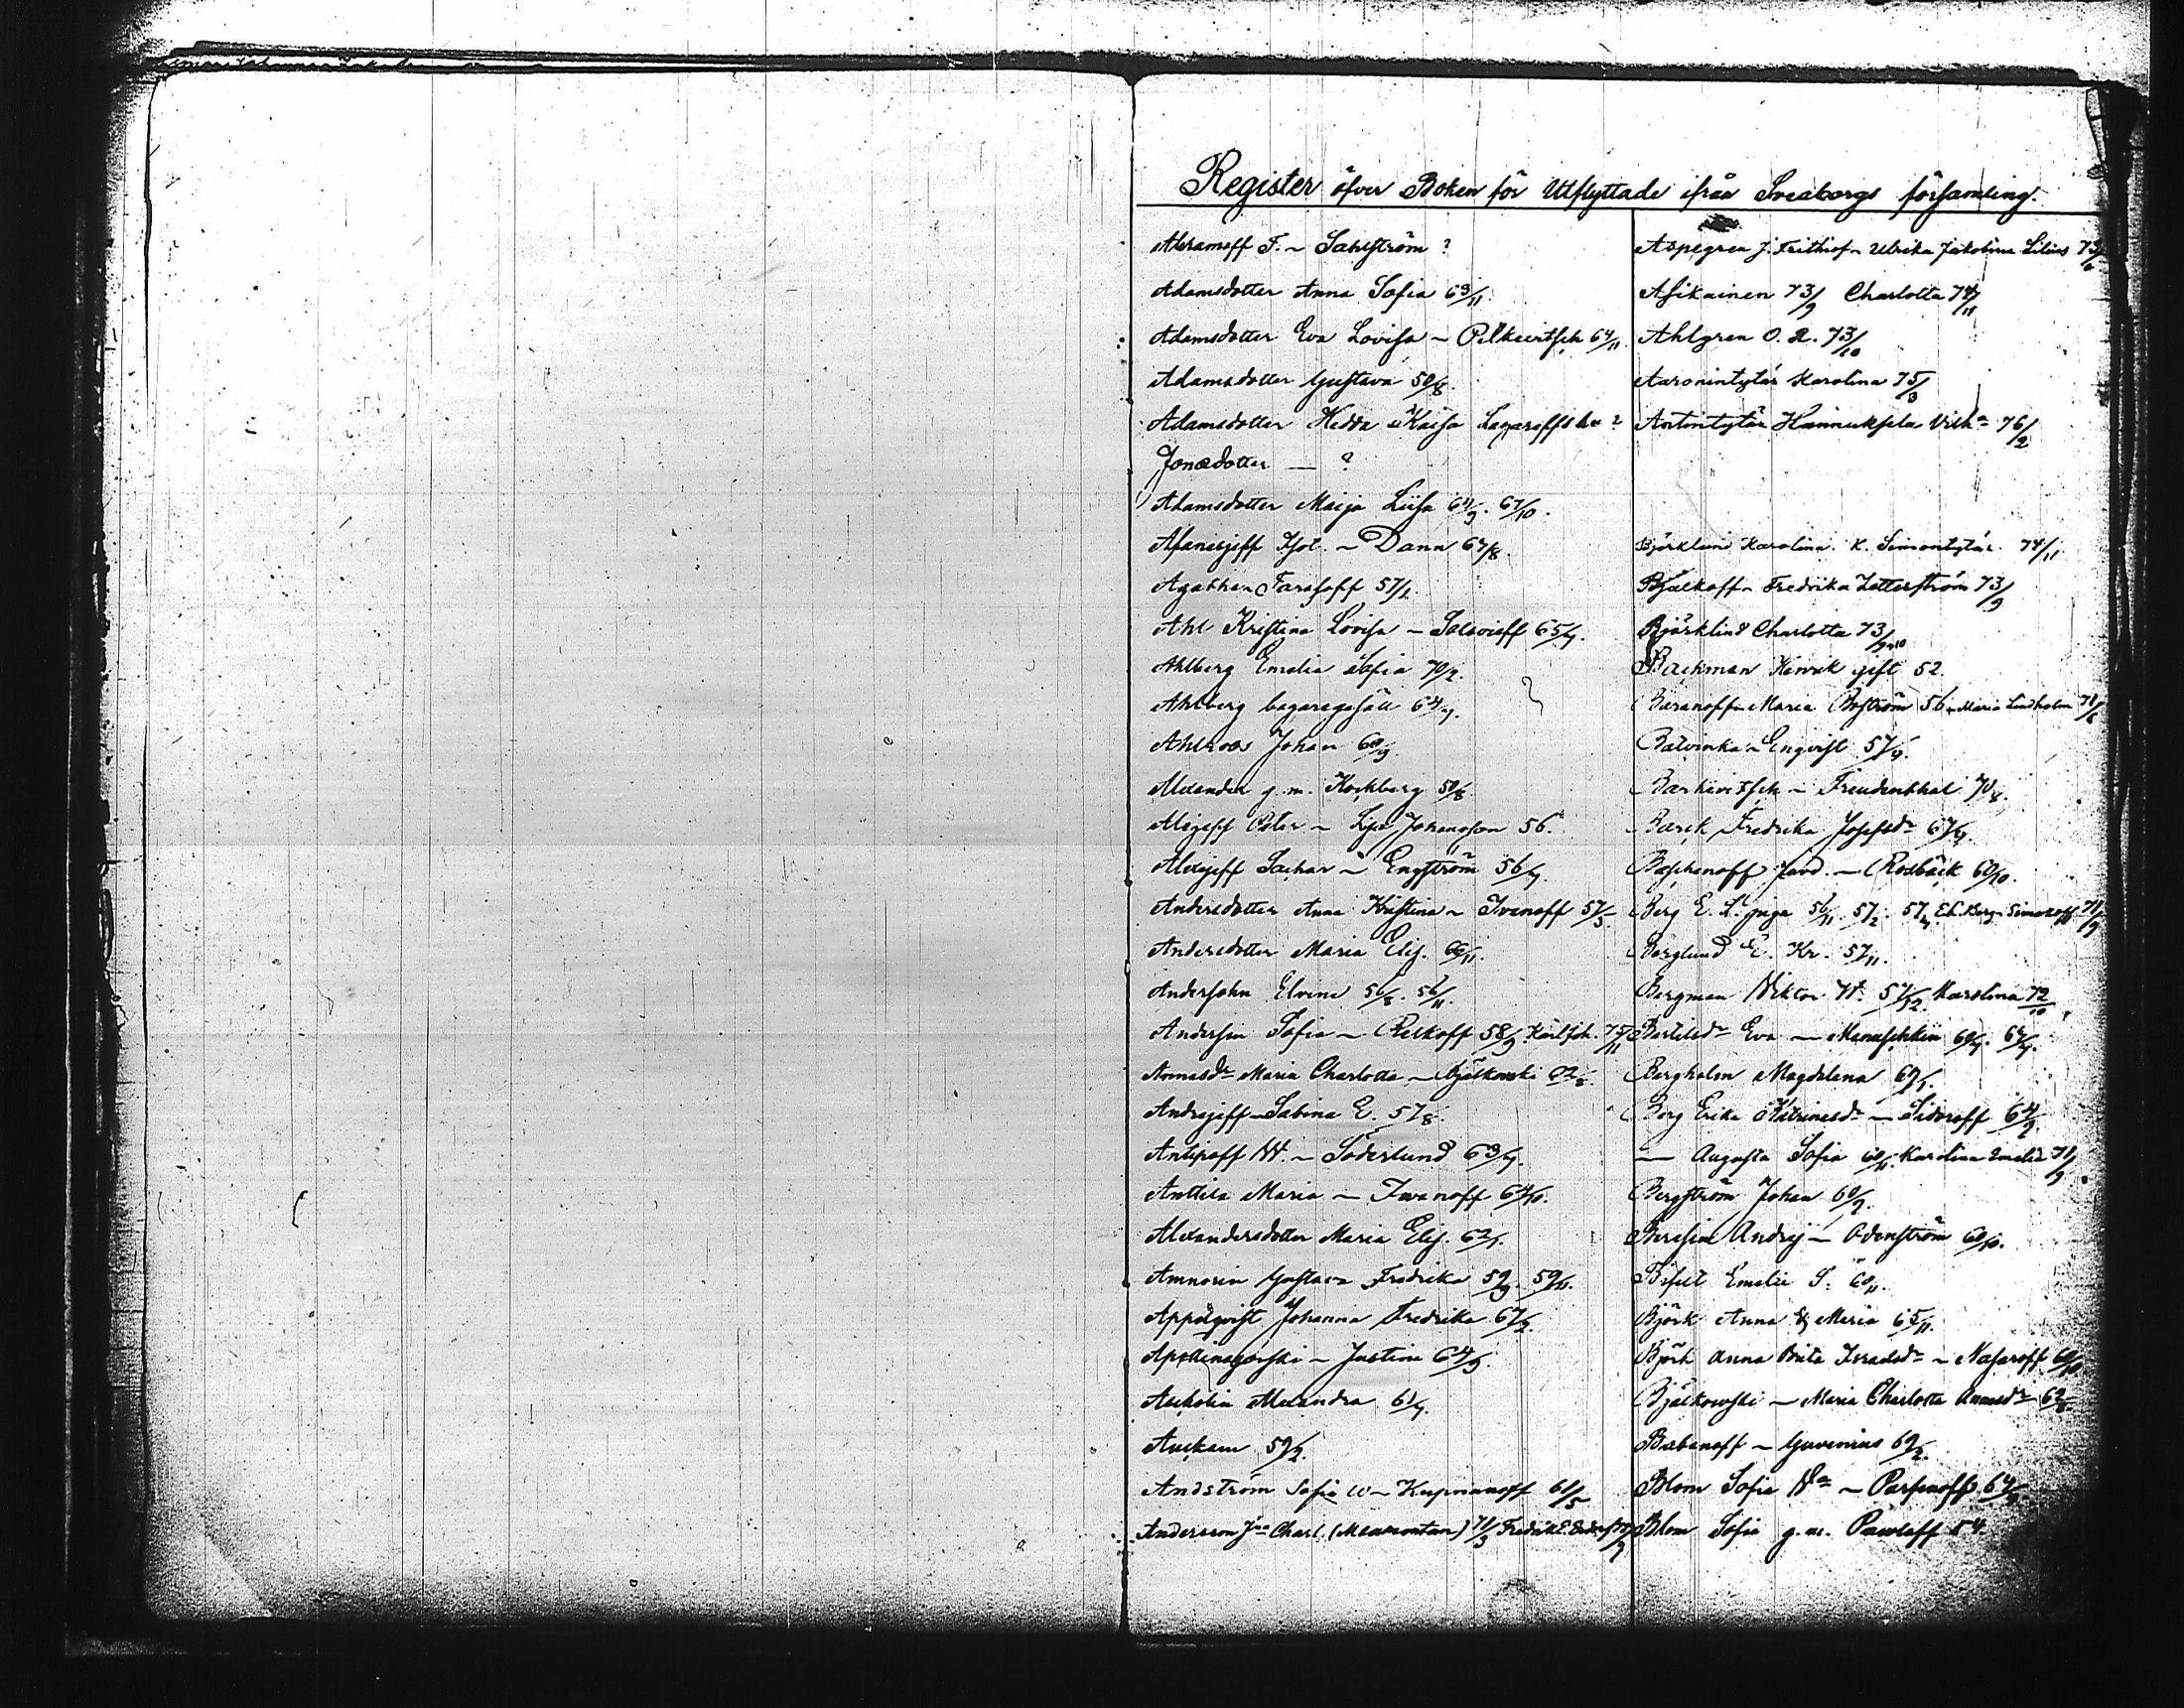 Register öfver Boken för Utflyttade ifrån Sveaborgs församling.
Abramoff F. ~ Sahlström ?
Adamsdotter Anna Sofia 63/11.
Adamsdotter Eva Lovisa ~ Pilkevitsch 64/11.
Adamsdotter Gustava 59/8.
Adamsdotter Hedda Kaisa Lazaroffska ?
Jonædotter — ?
Adamsdotter Maija Liisa 64/9. 67/10.
Afanasjeff ~ Dann 67/8.
Agathon Tarasoff 57/2.
Ahl Kristina Lovisa ~ Solovieff 65/4.
Ahlberg Emelia Sofia 70/2.
Ahlberg bagaregesäll 64/4.
Ahlroos Johan 60/9.
Alexander g. m. Hockberg 59/8.
Alexjeff Peter ~ Johansson 56.
Alexjeff Sachar ~ Engström 56/4.
Andersdotter Anna Kristina ~ Ivanoff 57/5.
Andersdotter Maria Elis. 66/11.
Andersohn Elvina 56/8. 56/11.
Andersin Sofia ~ Reskoff 58/9. Karl Joh. 75/11
Annasdr Maria Charlotta ~ Bjälkowski 62/8.
Andrejeff ~ Sabina E. 57/8.
Antipoff W. ~ Söderlund 63/4.
Anttila Maria ~ Iwanoff 64/10.
Alexandersdotter Maria Elis. 62/1.
Amnorin Gustava Fredrika 59/9. 59/11.
Appelqvist Johanna Fredrika 67/2.
Apollinagorski ~ Justina 64/9.
Ascholin Alexandra 61/4.
Auckam 59/2.
Andström Sofia W ~ Kuprianoff 61/5
Andersson Jna Charl. 71/3
Aspegren J. Frithiof ~ Ulrika Jakobina Lilius 73/6
Asikainen 73/9 Charlotta 74/11
Ahlgren O. R. 73/10
Aaronintytär Karolina 75/3
Antintytär Hannuksela Vilhma 76/2
Björklund Karolina. K. Simontytär. 74/11
Bjälkoff ~ Fredrika Zetterström 73/9
Björklind Charlotta 73/9
Backman Henrik gift 52.
Baranoff ~ Maria Boström 56 ~ Maria Lindholm 71/6
Batvinka ~ Engvist 57/4.
Barkevitsch ~ Freudenthal 70/8.
Barck Fredrika Josefsdr 67/4.
Baschenoff ~ Rosbäck 60/10.
Berg E. L. piga 56/11. 57/2. 57/4. E.L. Berg ~ Simakoff 71/9
Berglund E. Kr. 57/11.
Bergman Viktor W. 57/12. Karolina 72/10
Bertilsdr Eva ~ Manuschkin 60/4. 67/4.
Bergholm Magdalena 69/1.
Borg Erika Katrinasdr ~ Sidoroff 64/2
— Augusta Sofia 60/11. Karolina Emelia 71/9
Bergström Johan 60/9.
Beresin Andrej ~ Odenström 60/10.
Bifelt Emelie S. 60/11.
Björk Anna Maria 65/11.
Björk Anna Brita Israelsdr ~ Nasaroff 60/10
Bjälkowski ~ Maria Charlotta Annasdr 62/8.
Babanoff ~ Guvenius 69/2.
Blom Sofia Wa ~ Parfenoff 64/9.
Blom Sofia g. m. Pawloff 54.